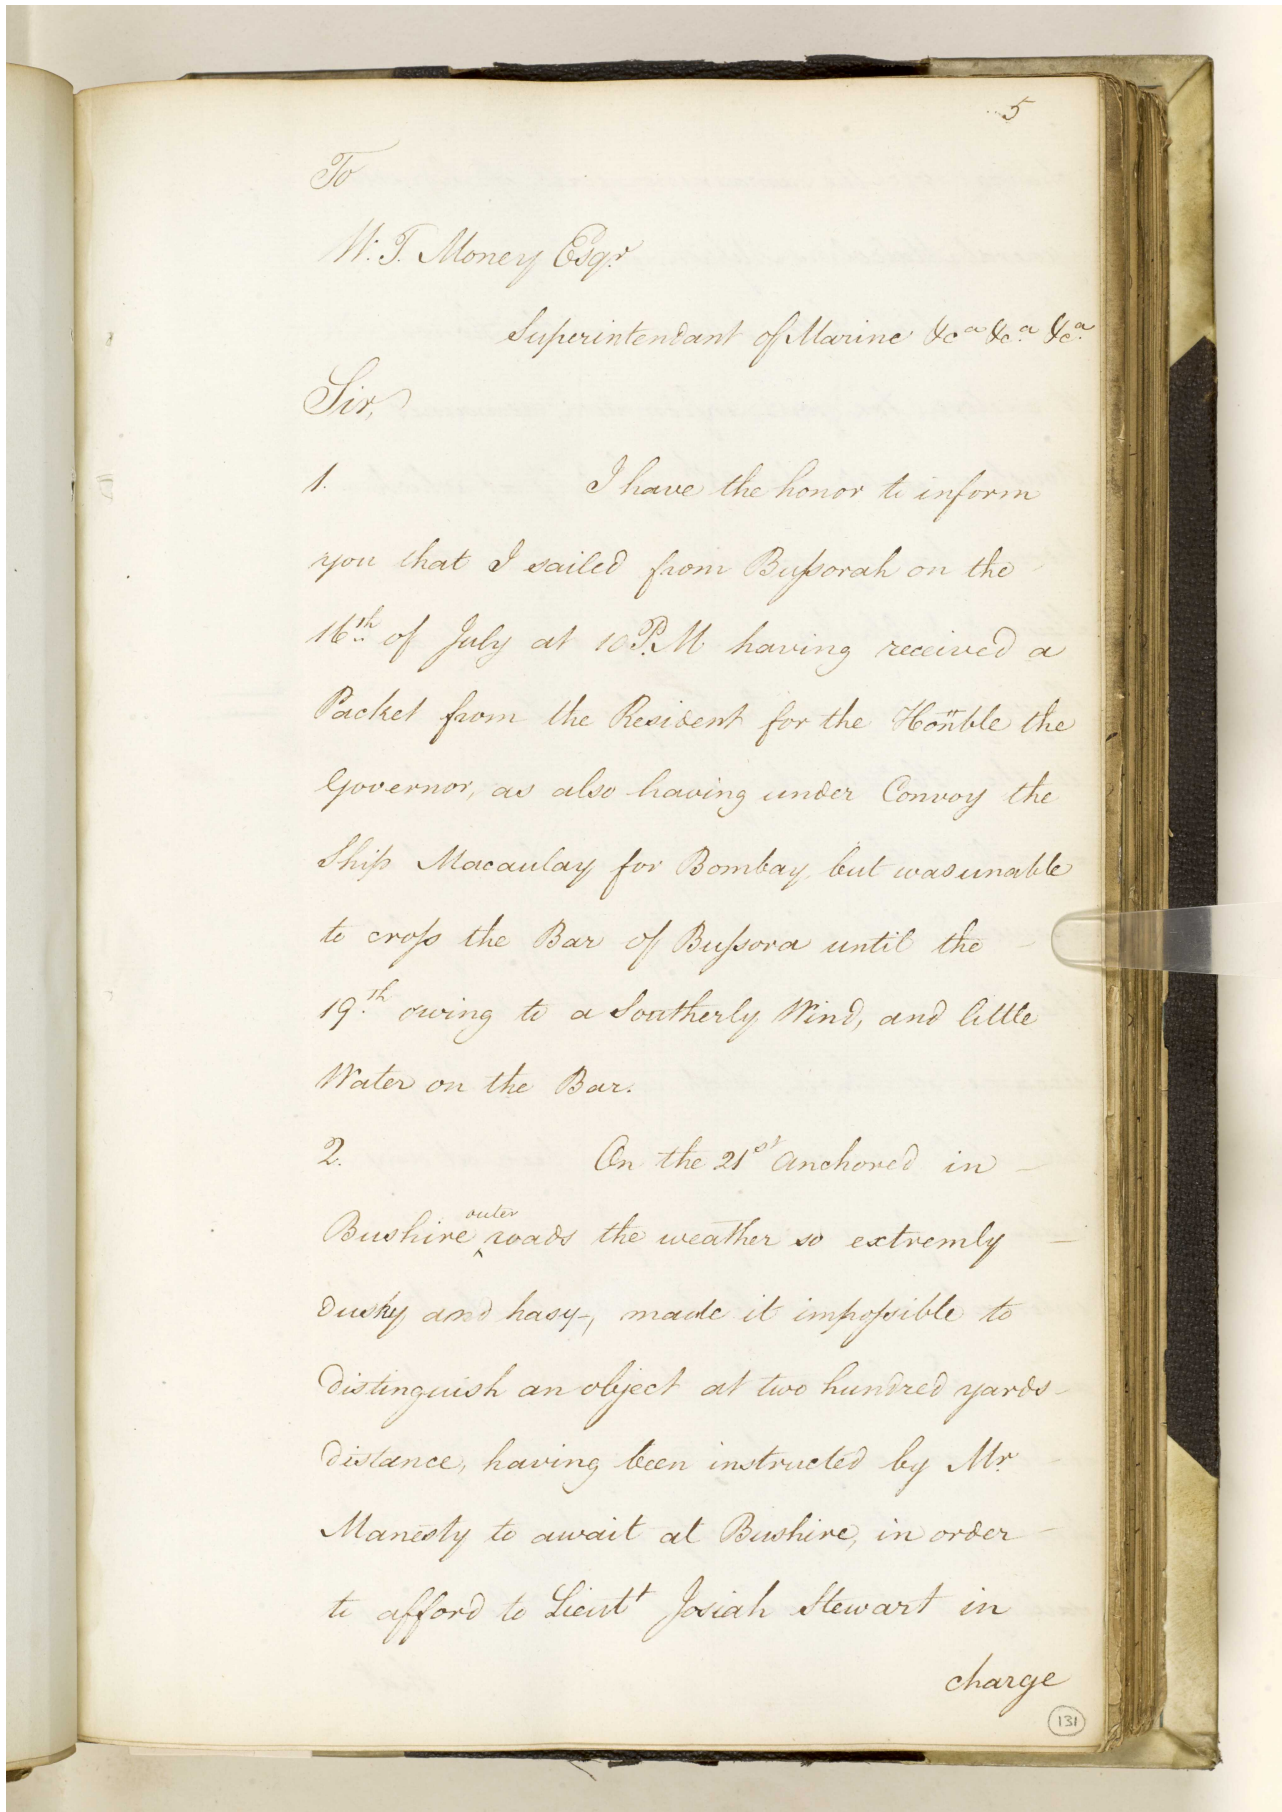 5
To
W. T. Money Esqr.
Superintendant of Marine &ca &ca. &ca.
Sir,
1. I have the honor to inform
you that I sailed from Bussorah on the
16th of July at 10 P.M. having received a
Packet from the Resident for the Honble the
Governor, as also having under Convoy the
Ship Macaulay for Bombay, but was unable
to cross the Bar of Bussora until the
19th. owing to a Southerly Wind, and little
Water on the Bar.
2. On the 21st anchored in
Bushire ^outer roads the weather so extremly
dusky and hasy-, made it impossible to
distinguish an object at two hundred yards
distance, having been instructed by Mr.
Manesty to await at Bushire, in order
to afford to Lieutt Josiah Stewart in
charge
131